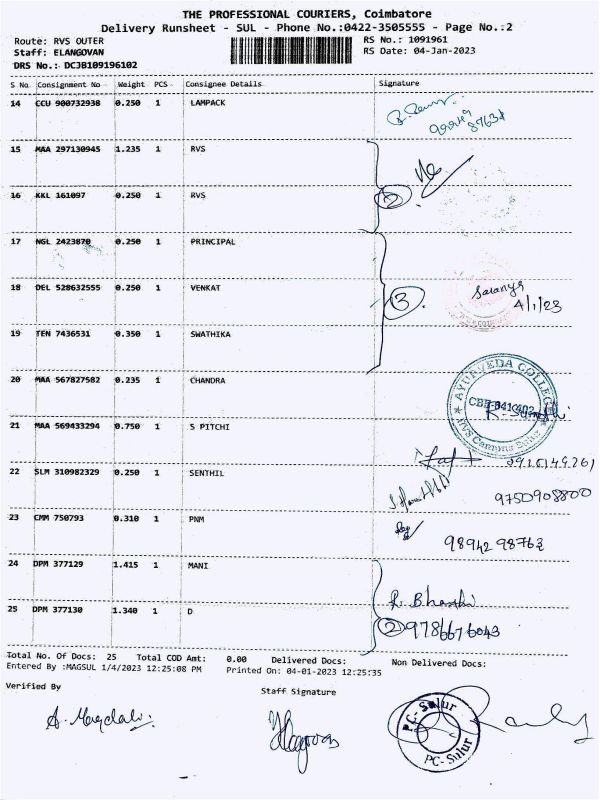 THE PROFESSIONAL COURIERS, Coimbatore
Delivery Runsheet - SUL - Phone No.:0422-3505555 - Page No.:2
Route: RVS OUTER RS No.: 1091961
Staff: ELANGOVAN RS Date: 04-Jan-2023
DRS No.: DCJB109196102
S No Consignment No Weight PCS Consignee Details Signature
14 CCU 900732938 0.250 1 LAMPACK
15 MAA 297130945 1.235 1 RVS
16 KKL 161097 0.250 1 RVS
2
17 NGL 2423870 0.250 1 PRINCIPAL
18 DEL 528632555 0.250 1 VENKAT
3 Saranya
4/1/23
19 TEN 7436531 0.350 1 SWATHIKA
20 MAA 567827582 0.235 1 CHANDRA
AYURVEDA COLLEGE
CBE-641 402
RVS Campus Sulur
21 MAA 569433294 0.750 1 S PITCHI
22 SLM 310982329 0.250 1 SENTHIL
9750908800
23 CMM 750793 0.310 1 PNM
98942 98763
24 DPM 377129 1.415 1 MANI
25 DPM 377130 1.340 1 D
2 9786676043
Total No. Of Docs: 25 Total COD Amt: 0.00 Delivered Docs: Non Delivered Docs:
Entered By :MAGSUL 1/4/2023 12:25:08 PM Printed On: 04-01-2023 12:25:35
Verified By Staff Signature
PC-Sulur
PC-Sulur